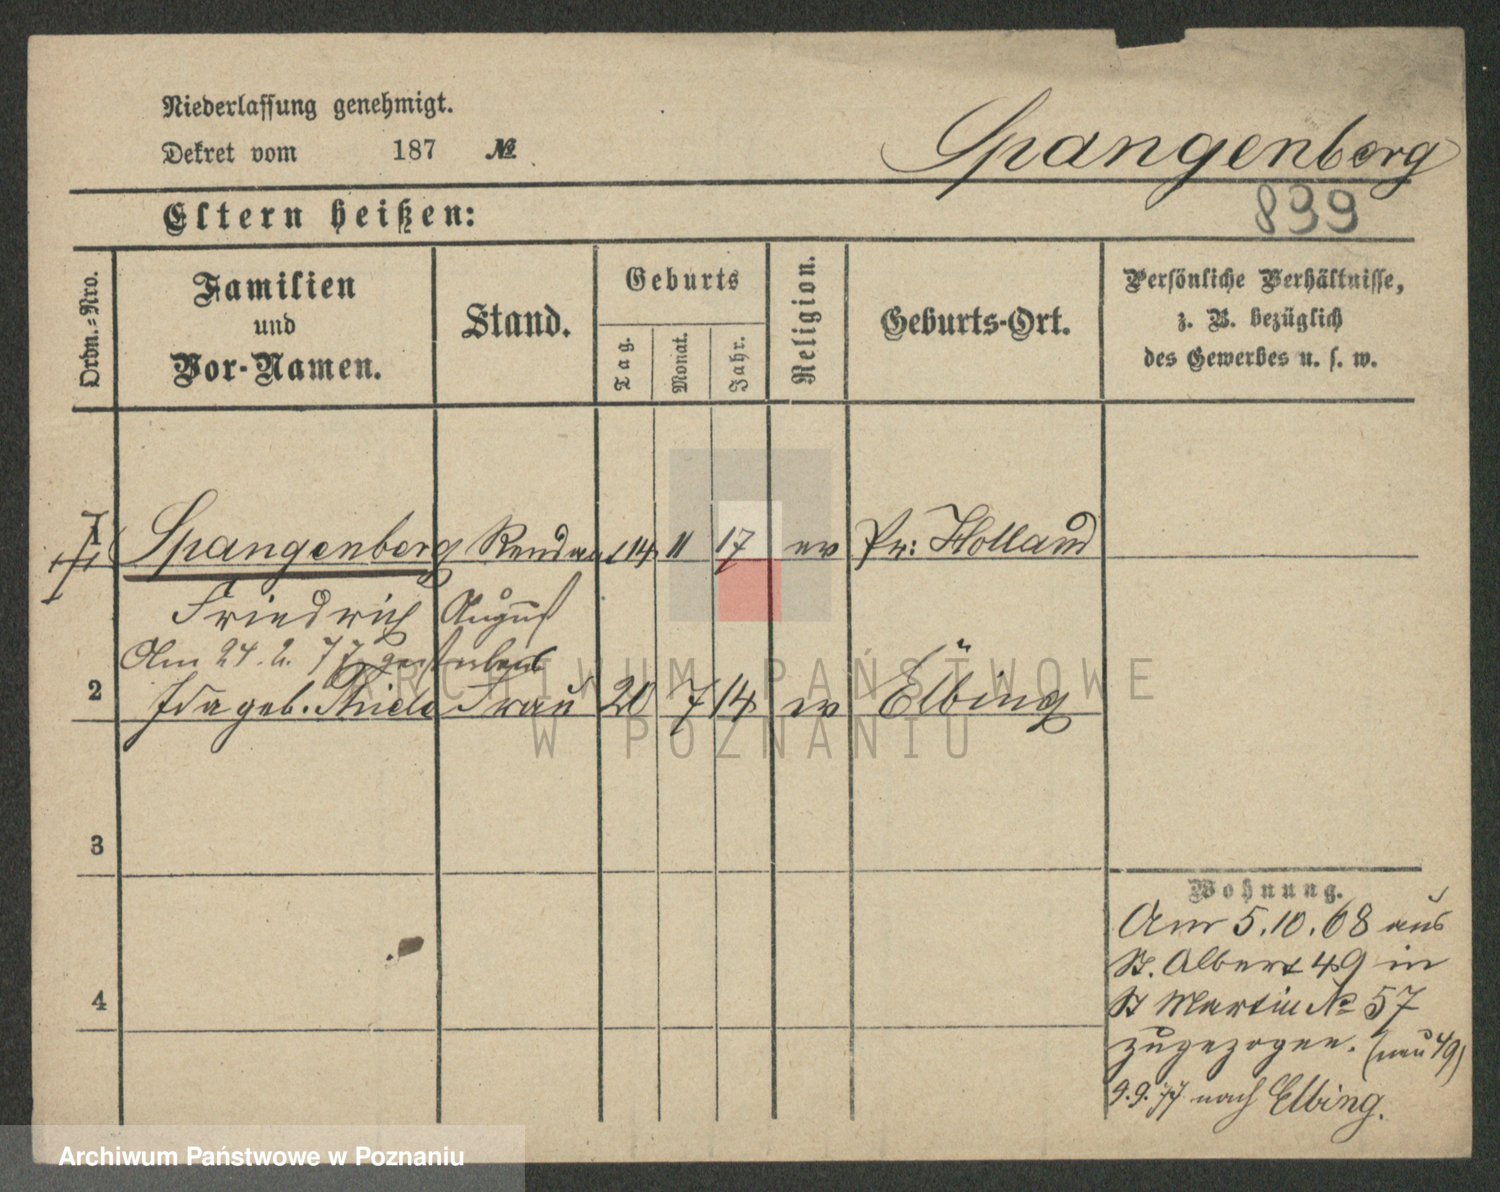 Niederlassung genehmigt.
Dekret vom 187 №
Spangenberg
839
Eltern heißen:
Ordn.-Nro.
Familien
und
Vor-Namen.
Stand.
Geburts
Tag.
Monat.
Jahr.
Religion.
Geburts-Ort.
Persönliche Verhältnisse,
z. B. bezüglich
des Gewerbes u. s. w.
1 Spangenberg Rendant 14 11 17 ev Pr: Holland
Friedrich August
Am 24. 2. 77 gestorben
2 Ida geb. Frau 20 7 14 ev Elbing
3
4
Wohnung.
Am 5.10.68 aus
St. Albert 49 in
St Martin № 57
zugezogen. (neu 49)
9.9.77 nach Elbing.
ARCHIWUM PAŃSTWOWE
W POZNANIU
Archiwum Państwowe w Poznaniu